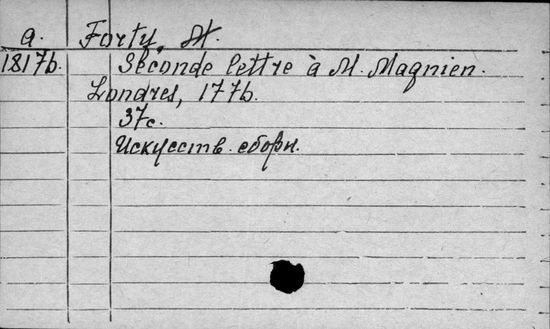 a. Forty, St.
1817b. Seconde lettre à M. Magnien.
Londres, 1776.
37c.
Искусств. сборн.